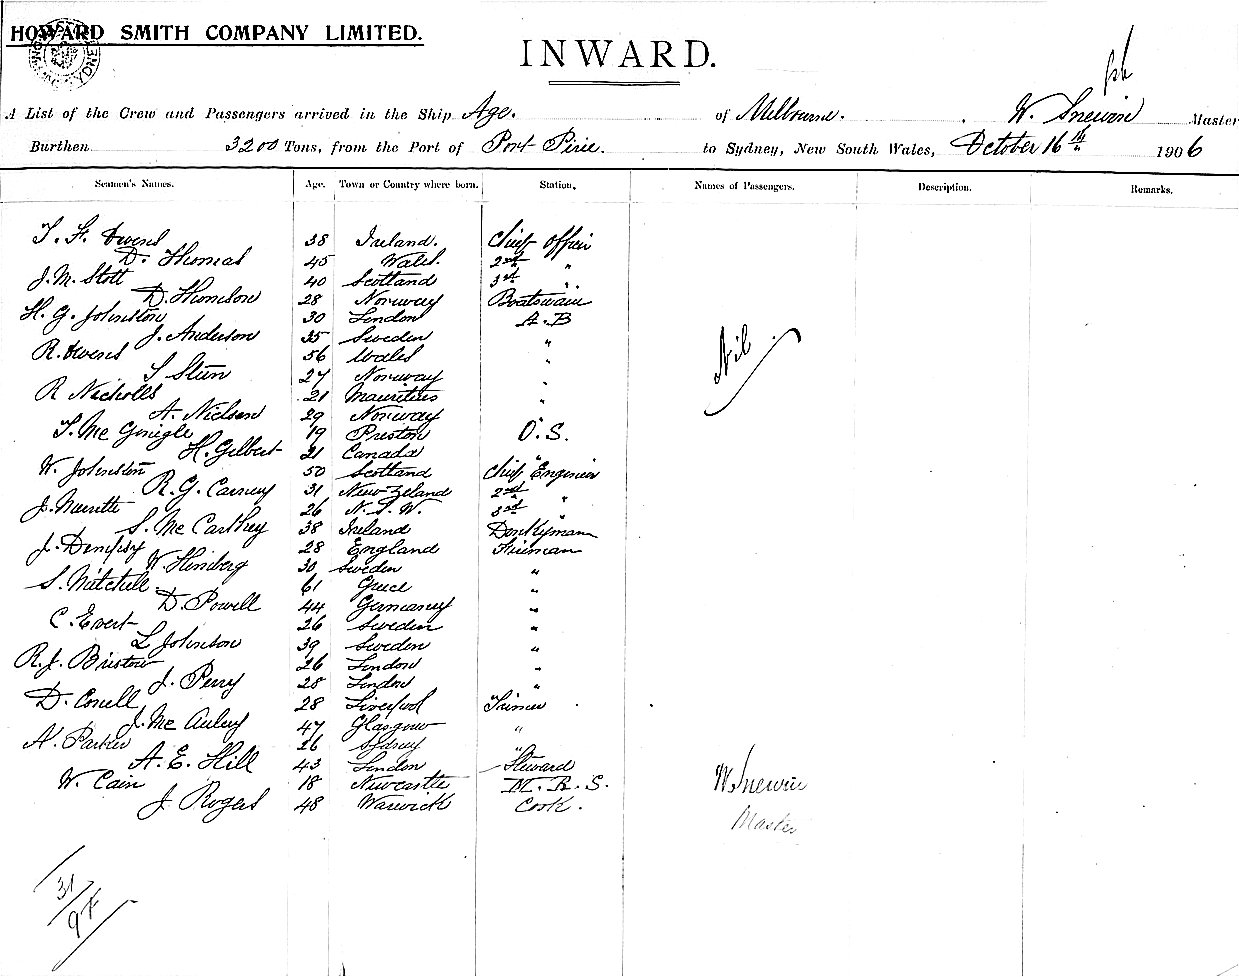 HOWARD SMITH COMPANY LIMITED.
INWARD.
A List of the Crew and Passengers arrived in the Ship Age. of Melbourne. W. Snewin Master
Burthen 3200 Tons, from the Port of Port Pirie. to Sydney, New South Wales, October 16th 1906
Seamen's Names. Age. Town or Country where born. Station. Names of Passengers. Description. Remarks.
T. H. Owens 38 Ireland. Chief Officer
D. Thomas 45 Wales. 2nd "
J. M. Stott 40 Scotland 3rd "
D. Thomson 28 Norway Boatswain
H. G. Johnston 30 London A.B
J. Anderson 35 Sweden "
R. Owens 56 Wales "
S 27 Norway "
R Nicholls 21 Mauritius "
A. Nielsen 29 Norway
T. Mc Gonigle 19 Preston O.S.
H. Gilbert 21 Canada "
W. Johnston 50 Scotland Chief Engineer
R. G. Carney 31 New Zeland 2nd "
J. 26 N.S.W. 3rd "
S. Mc Carthey 38 Ireland Donkyman
J. Dempsy 28 England Fireman
W. 30 Sweden "
S. Mitchell 61 Greece "
D. Powell 44 Germaney "
C. Evert 26 Sweden "
L Johnson 39 Sweden "
R. J. Bristow 26 London "
J. Perry 28 London "
D. 28 Liverpool Trimer
J. Mc Auley 47 Glasgow "
N. Parker 26 Sydney "
A. E. Hill 43 London Steward
W. Cain 18 Newcastle M.R.S.
J Rogers 48 Warwick Cook.
Nil
W. Snewin
Master
31